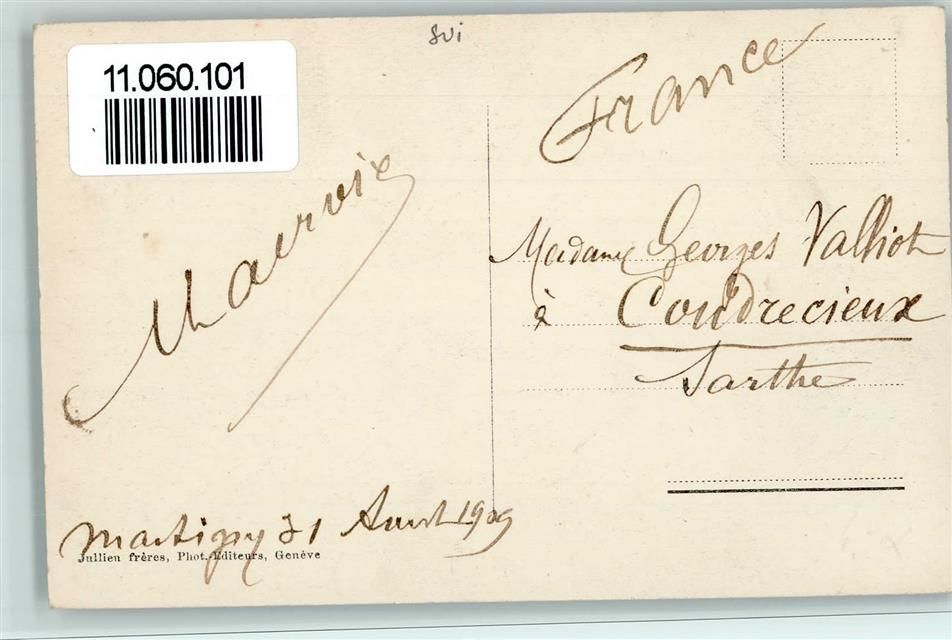 svi
11.060.101
France
Madame Georges Valliot
à Coudrecieux
Sarthe
Martigny 31 Aout 1909
Jullien frères, Phot.-Editeurs, Genève